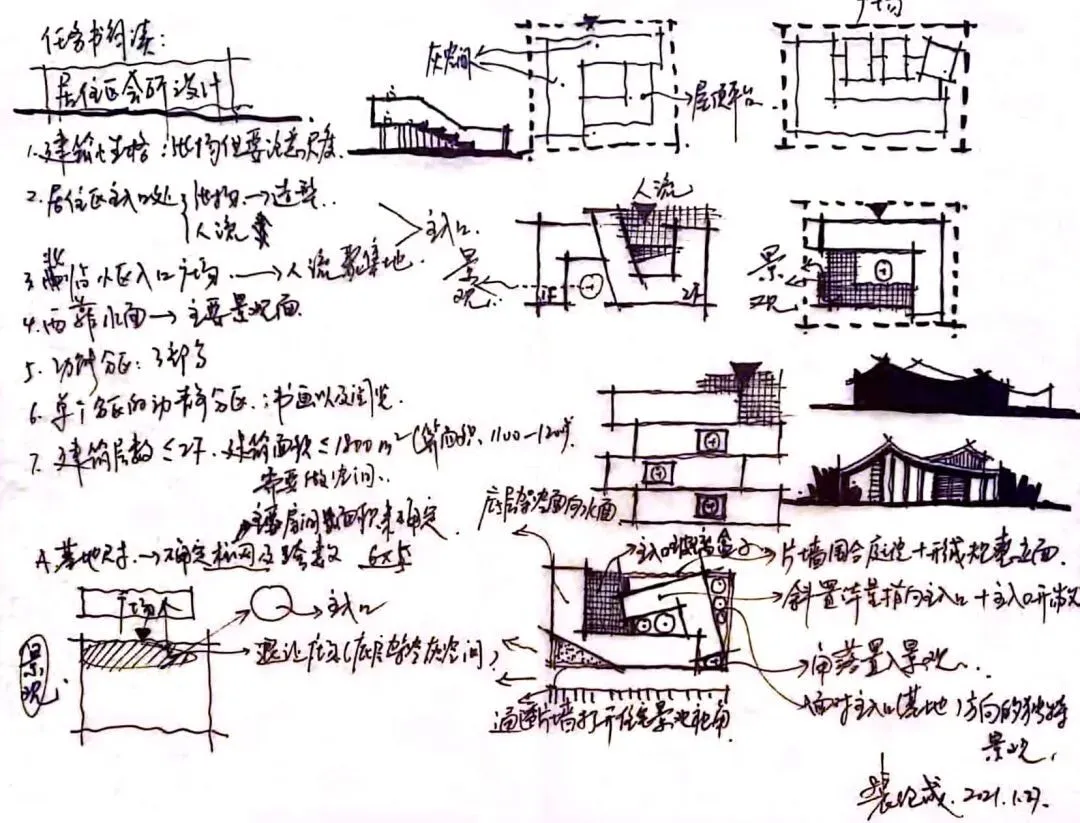 任务书解读：
居住区会所设计
1.建筑性格：活泼但要注意尺度.
2.居住区主入口处 活泼→造型..
人流
主入口.
3. 临小区入口广场.→人流聚集地.
4.西靠水面→主要景观面
5.功能分区：3部分
6.单个分区的动静分区.：书画以及阅览.
7.建筑层数≤2F.建筑面积≤1800m²(算面积.1100-1200
需要做空间..
主要房间 面积来确定
A.基地尺寸.→确定柱网及跨数 6×5
广场
景观.
主入口
退让广场(底层架空灰空间)
灰空间
屋顶平台.
广场
人流
景观..
1F
2F
景观.
底层架空面向水面
主入口玻璃盒子
片墙围合庭院+形成规整立面.
斜置体量指向主入口+主入口开敞
角落置入景观..
面对主入口(基地)方向的独特
景观.
通过片墙打开 景观视角
2021.1.27.